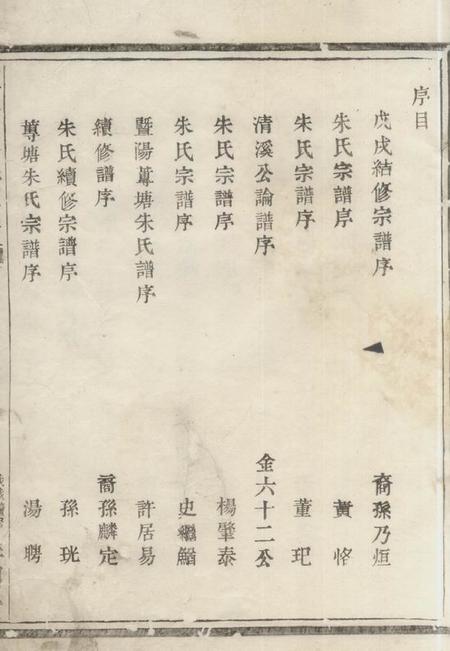 序目
戊戌結修宗譜序 裔孫乃烜
朱氏宗譜序 黃恪
朱氏宗譜序 董玘
清溪公論譜序 金六十二公
朱氏宗譜序 楊肇泰
朱氏宗譜序 史繼鰌
暨陽蓴塘朱氏譜序 許居易
續修譜序 裔孫麟定
朱氏續修宗譜序 孫珖
蓴塘朱氏宗譜序 湯聘